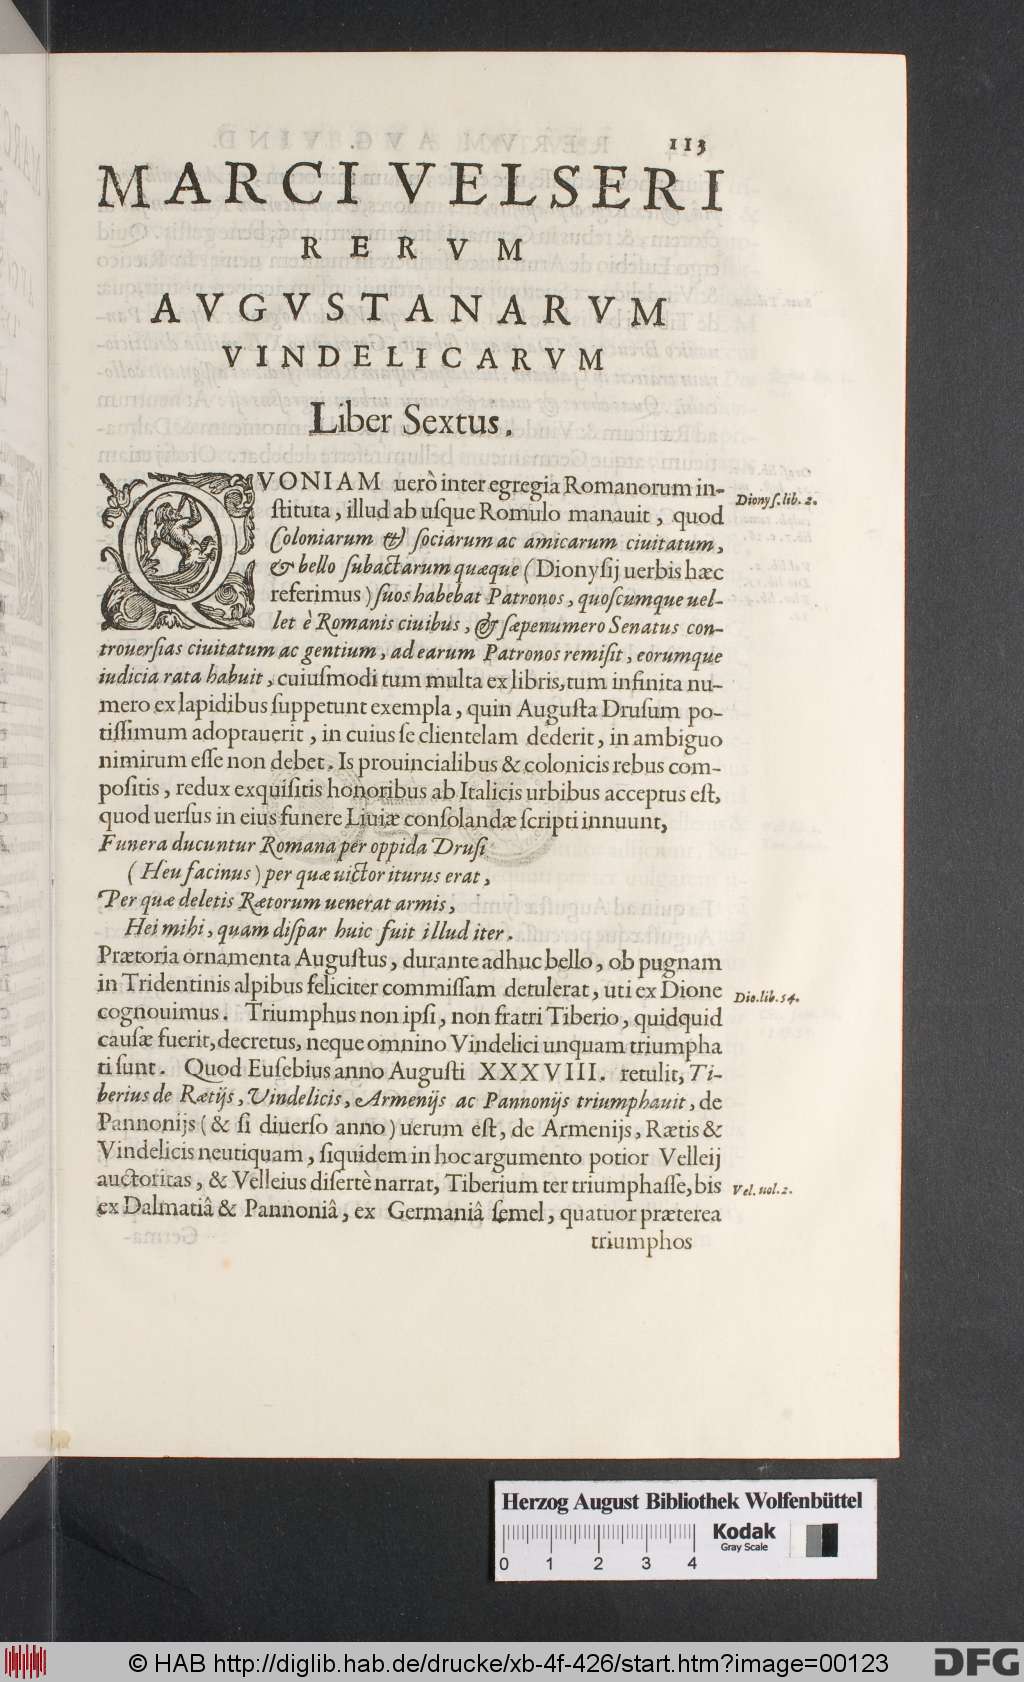 113
MARCI VELSERI
RERVM
AVGVSTANARVM
VINDELICARVM
Liber Sextus.
QVONIAM uerò inter egregia Romanorum in-
ſtituta, illud ab uſque Romulo manauit, quod
Coloniarum & ſociarum ac amicarum ciuitatum,
& bello ſubactarum quæque (Dionyſij uerbis hæc
referimus) ſuos habebat Patronos, quoſcumque uel-
let è Romanis ciuibus, & ſæpenumero Senatus con-
trouerſias ciuitatum ac gentium, ad earum Patronos remiſit, eorumque
iudicia rata habuit, cuiuſmodi tum multa ex libris, tum infinita nu-
mero ex lapidibus ſuppetunt exempla, quin Auguſta Druſum po-
tiſſimum adoptauerit, in cuius ſe clientelam dederit, in ambiguo
nimirum eſſe non debet. Is prouincialibus & colonicis rebus com-
poſitis, redux exquiſitis honoribus ab Italicis urbibus acceptus eſt,
quod uerſus in eius funere Liuiæ conſolandæ ſcripti innuunt,
Funera ducuntur Romana per oppida Druſi
(Heu facinus) per quæ uictor iturus erat,
Per quæ deletis Rætorum uenerat armis,
Hei mihi, quam diſpar huic fuit illud iter.
Prætoria ornamenta Auguſtus, durante adhuc bello, ob pugnam
in Tridentinis alpibus feliciter commiſſam detulerat, uti ex Dione
cognouimus. Triumphus non ipſi, non fratri Tiberio, quidquid
cauſæ fuerit, decretus, neque omnino Vindelici unquam triumpha
ti ſunt. Quod Euſebius anno Auguſti XXXVIII. retulit, Ti-
berius de Rætijs, Vindelicis, Armenijs ac Pannonijs triumphauit, de
Pannonijs (& ſi diuerſo anno) uerum eſt, de Armenijs, Rætis &
Vindelicis neutiquam, ſiquidem in hoc argumento potior Velleij
auctoritas, & Velleius diſertè narrat, Tiberium ter triumphaſſe, bis
ex Dalmatiâ & Pannoniâ, ex Germaniâ ſemel, quatuor præterea
triumphos
Dionyſ. lib. 2.
Dio. lib. 54.
Vel. uol. 2.
Herzog August Bibliothek Wolfenbüttel
Kodak
Gray Scale
0 1 2 3 4
© HAB http://diglib.hab.de/drucke/xb-4f-426/start.htm?image=00123
DFG